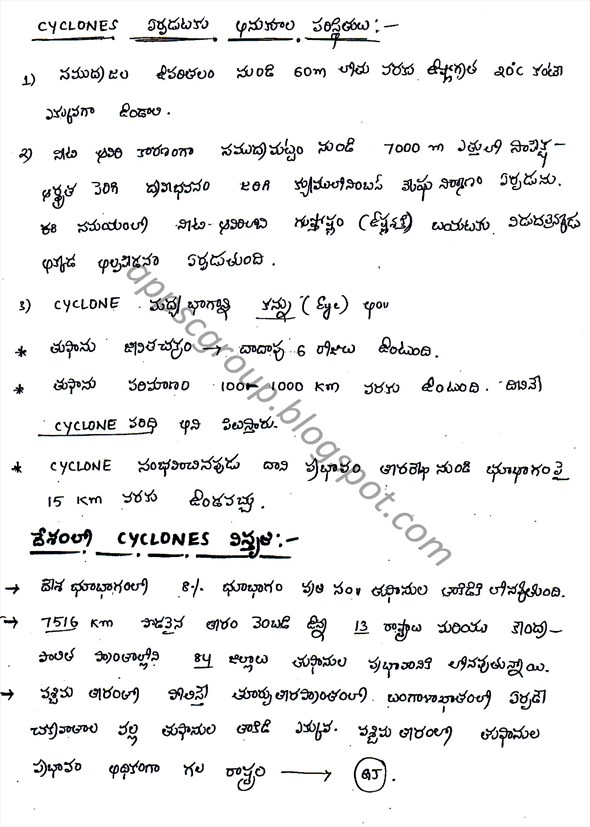 CYCLONES ఏర్పడుటకు అనుకూల పరిస్థితులు :-
1) సముద్రజల ఉపరితలం నుండి 60m లోతు వరకు ఉష్ణోగ్రత 20°c కంటే
ఎక్కువగా ఉండాలి.
2) నీటి ఆవిరి కారణంగా సముద్రమట్టం నుండి 7000 m ఎత్తులో సాపేక్ష-
ఆర్ద్రత పెరిగి ద్రవీభవనం జరిగి క్యుములోనింబస్ మేఘ నిర్మాణం ఏర్పడును.
ఈ సమయంలో నీటి ఆవిరిలోని గుప్తోష్ణం (ఉష్ణశక్తి) బయటకు విడుదలైనప్పుడు
అక్కడ అల్పపీడనం ఏర్పడుతుంది.
3) CYCLONE మధ్య భాగాన్ని కన్ను (Eye) అం||
* తుఫాను జీవితచక్రం → దాదాపు 6 రోజులు ఉంటుంది.
* తుఫాను పరిమాణం 100 - 1000 KM వరకు ఉంటుంది. దీనినే
CYCLONE పరిధి అని పిలుస్తారు.
* CYCLONE సంభవించినపుడు దాని ప్రభావం తీరరేఖ నుండి భూభాగంపై
15 KM వరకు ఉండవచ్చు.
దేశంలో CYCLONES విస్తృతి :-
→ దేశ భూభాగంలో 8% భూభాగం ప్రతి సం|| తుఫానుల తాకిడికి లోనవుతుంది.
→ 7516 KM పొడవైన తీరం వెంబడి ఉన్న 13 రాష్ట్రాలు మరియు కేంద్ర-
పాలిత ప్రాంతాల్లోని 84 జిల్లాలు తుఫానుల ప్రభావానికి లోనవుతున్నాయి.
→ పశ్చిమ తీరంతో పోలిస్తే తూర్పుతీరప్రాంతంలో బంగాళాఖాతంలో ఏర్పడే
చక్రవాతాల వల్ల తుఫానుల తాకిడి ఎక్కువ. పశ్చిమ తీరంలో తుఫానుల
ప్రభావం అధికంగా గల రాష్ట్రం → GJ.
appscgroup.blogspot.com